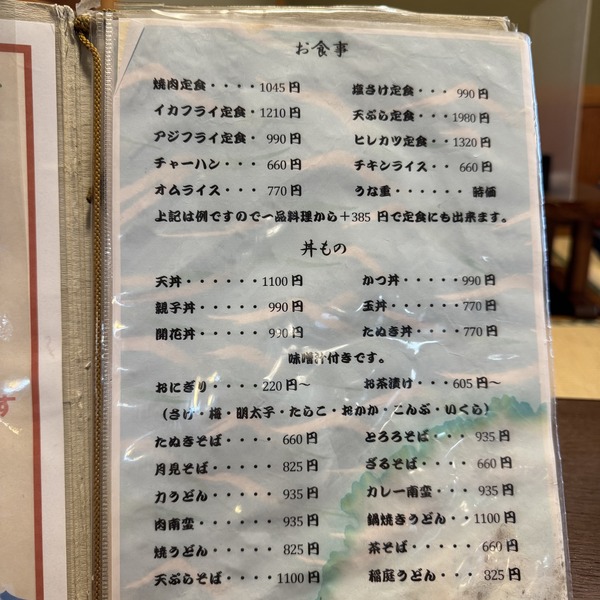 お食事
焼肉定食・・・・1045円 塩さけ定食・・・990円
イカフライ定食・1210円 天ぷら定食・・・1980円
アジフライ定食・990円 ヒレカツ定食・・1320円
チャーハン・・・660円 チキンライス・・660円
オムライス・・・770円 うな重・・・・・・時価
上記は例ですので一品料理から＋385円で定食にも出来ます。
丼もの
天丼・・・・・・1100円 かつ丼・・・・・990円
親子丼・・・・・990円 玉丼・・・・・・770円
開花丼・・・・・990円 たぬき丼・・・・770円
味噌汁付きです。
おにぎり・・・・220円～ お茶漬け・・・605円～
（さけ・梅・明太子・たらこ・おかか・こんぶ・いくら）
たぬきそば・・・・660円 とろろそば・・・935円
月見そば・・・・・825円 ざるそば・・・・660円
力うどん・・・・・935円 カレー南蛮・・・935円
肉南蛮・・・・・・935円 鍋焼きうどん・・1100円
焼うどん・・・・・825円 茶そば・・・・・660円
天ぷらそば・・・・1100円 稲庭うどん・・・825円
す